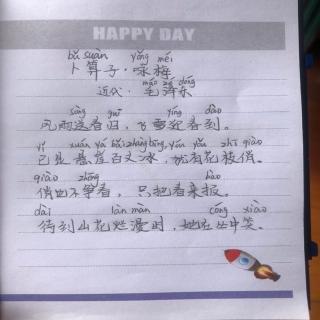 HAPPY DAY
bǔ suàn yǒng méi
卜算子·咏梅
máo zé dōng
近代·毛泽东
sòng guī yíng dào
风雨送春归，飞雪迎春到。
yǐ xuán yá bǎi zhàng bīng yóu yǒu zhī qiào
已是悬崖百丈冰，犹有花枝俏。
qiào zhēng bào
俏也不争春，只把春来报。
dài làn màn cóng xiào
待到山花烂漫时，她在丛中笑。